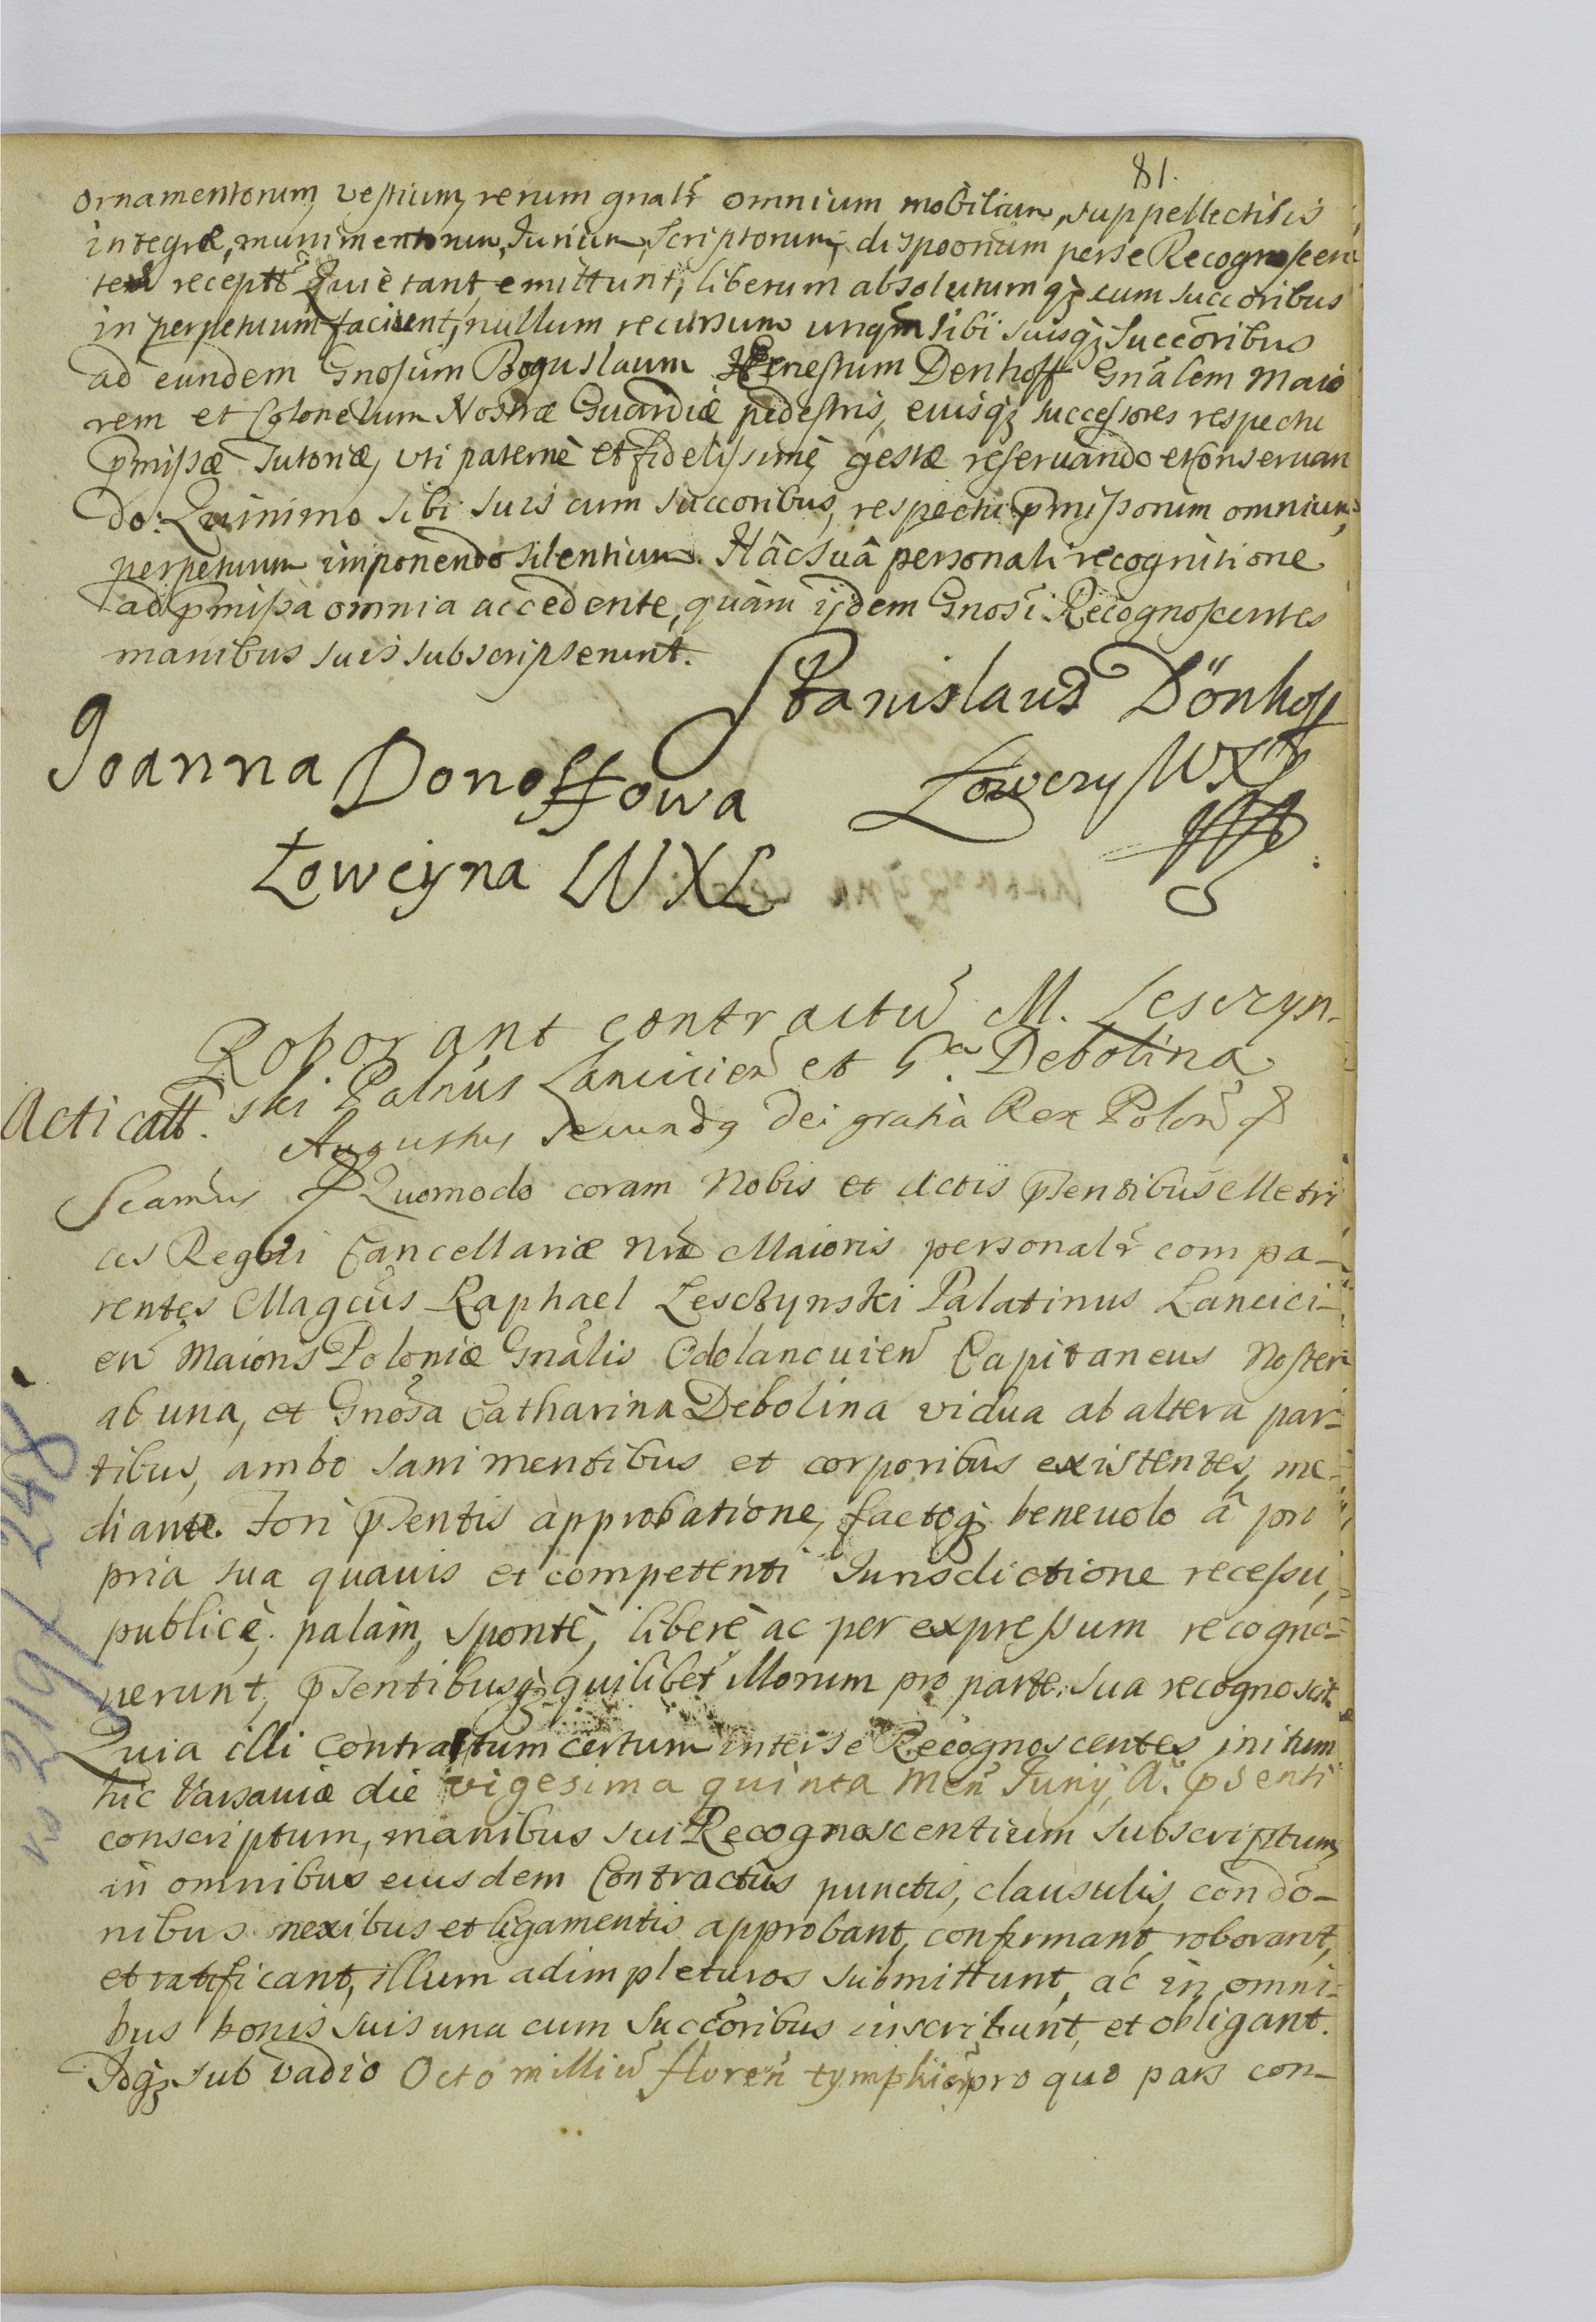 81.
ornamentorum, vestium, rerum gnalr̃ omnium mobilium, suppellectilis
integræ, munimentorum, Jurium, Scriptorum, dispoõnum per se Recognoscen
tes receptt̃ Quiètant, emittunt, liberum absolutumq̃ cum succoribus
in perpetuum faciunt, nullum recursum unqm̃ sibi suisq̃ Succõribus
ad eundem Gnosum Boguslaum Ernestum Denhoff Gnãlem Maio
rem et Colonelum Nostræ Guardiæ pedestris, eiusq̃ successores respectu
p̃missæ Tutoriæ, uti paternè et fidelissimè gestæ reservando et conservan
do: Quinimo sibi suis cum succoribus, respectu p̃missorum omnium,
perpetuum imponendo silentium. Hâc suâ personali recognitione
ad p̃missa omnia accedente, quàm ijdem Gnosĩ Recognoscentes
manibus suis subscripserunt.
Stanislaus Dönhoff
Łowczy WXL
Joanna Donoffowa
Łowcÿna WXL
Roborant contractũ M. Lesczyn-
ski Palnũs Lancicieñ et Gã. Debolina
Acticatt̃.
Augustus Secundg Dei gratia Rex Poloñ &
Scamũs & Quomodo coram Nobis et Actis p̃sentibus Metri
ces Regni Cancellariæ Nrã Maioris personalr̃ compa-
rentes Magcũs Raphael Lesczynski Palatinus Lancici-
eñ Maioris Poloniæ Gnãlis Odolancuieñ Capitaneus Noster
ab una, et Gnõsa Catharina Debolina vidua ab altera par-
tibus, ambo sani mentibus et corporibus existentes, me-
diante Fori p̃sentis approbatione, factoq̃ benevolo ã pro
pria sua quavis et competenti Jurisdictione recessu,
publicè, palàm, spontè, liberè ac per expressum recogno-
uerunt, p̃sentibusq̃ quilibet illorum pro parte sua recognoscit
Quia illi Contractum certum inter se Recognoscentes initum
hic Varsaviæ die vigesima quinta Meñ Junij, A. p̃senti
conscriptum, manibus sui Recognoscentium subscriptum,
in omnibus eiusdem Contractûs punctis, clausulis, condõ-
nibus nexibus et ligamentis approbant, confirmant, roborant,
et ratificant, illum adimpleturos submittunt, ac in omni-
bus bonis suis una cum Succõribus inscribunt, et obligant.
Idq̃ sub vadio Octo milliũ floreñ tymphioñ pro quo pars con-